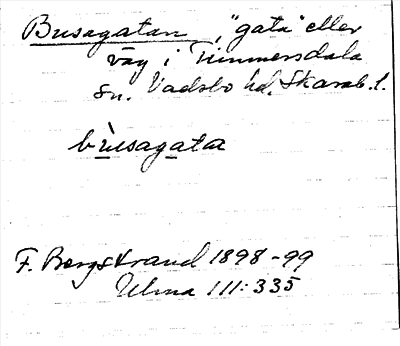 Busagatan, "gata" eller
väg i Timmersdala
sn. Vadsbo hd. Skarab. l.
bùsagata
F. Bergstrand 1898-99
Ulma 111:335